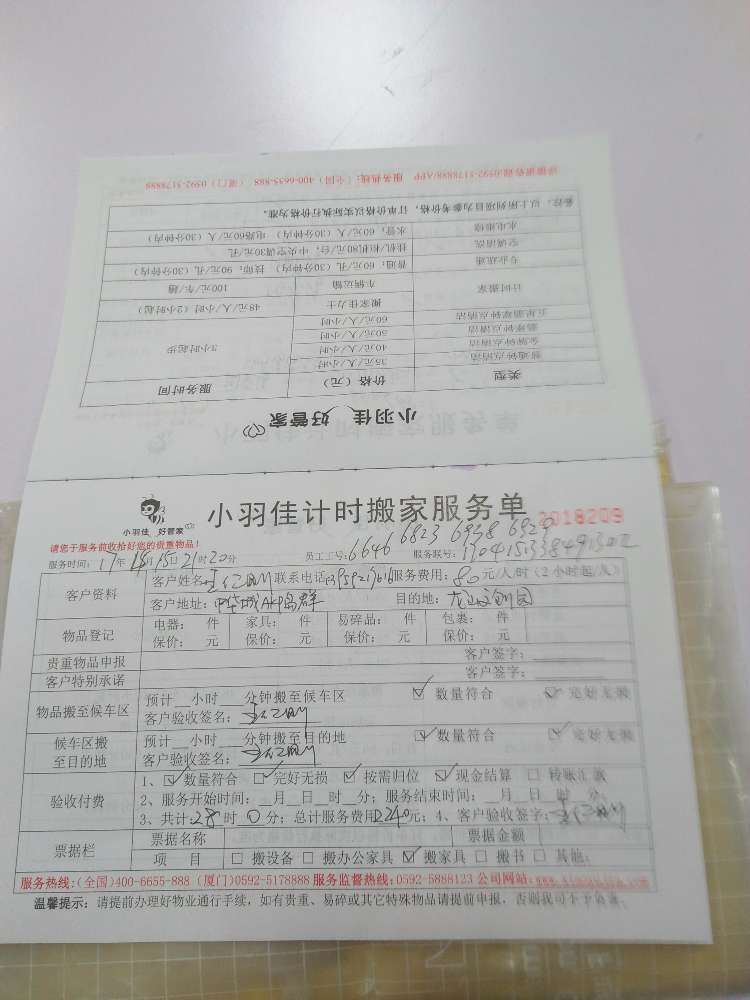 详细请咨询:0592-5178888/APP 服务热线:(全国)400-6655-888 (厦门)0592-5178888
备注:以上所列项目为参考价格,订单价格以实际执行价格为准。
水电维修 水管:60元/人(30分钟内) 电路60元/人(30分钟内)
空调清洗 挂机/柜机80元/台;中央空调30元/孔
专业疏通 普通:60元/孔(30分钟内) 技师:90元/孔(30分钟)
计时搬家 车辆运输 100元/车/趟
搬家佳力士 48元/人/小时(2小时起)
五星翡翠钟点清洁 60元/人/小时
翡翠钟点清洁 50元/人/小时
金牌钟点清洁 40元/人/小时 2小时起步
普通钟点清洁 35元/人/小时
类型 价格(元) 服务时间
小羽佳 好管家
小羽佳 好管家
小羽佳计时搬家服务单
2018209
请您于服务前收拾好您的贵重物品!
服务时间: 17年 月15日21时20分 员工工号: 6646 6823 6938 服务联号:
客户资料 客户姓名: 联系电话: 服务费用: 80元/人/时(2小时起/人)
客户地址: 中华城 群 目的地: 龙山文创园
物品登记 电器: 件 家具: 件 易碎品: 件 包裹: 件
保价: 元 保价: 元 保价: 元 保价: 元
贵重物品申报 客户签字:
客户特别承诺 客户签字:
物品搬至候车区 预计 小时 分钟搬至候车区 数量符合 完好无损
客户验收签名:
候车区搬至目的地 预计 小时 分钟搬至目的地 数量符合 完好无损
客户验收签名:
验收付费 1、 数量符合 完好无损 按需归位 现金结算 转账汇款
2、服务开始时间: 月 日 时 分;服务结束时间: 月 日 时 分;
3、共计: 28时0分;总计服务费用2240元;4、客户验收签字:
票据栏 票据名称 票据金额
项 目 搬设备 搬办公家具 搬家具 搬书 其他:
服务热线:(全国)400-6655-888 (厦门)0592-5178888 服务监督热线:0592-5888123 公司网站:
温馨提示:请提前办理好物业通行手续,如有贵重、易碎或其它特殊物品请提前申报,否则我司不予负责。